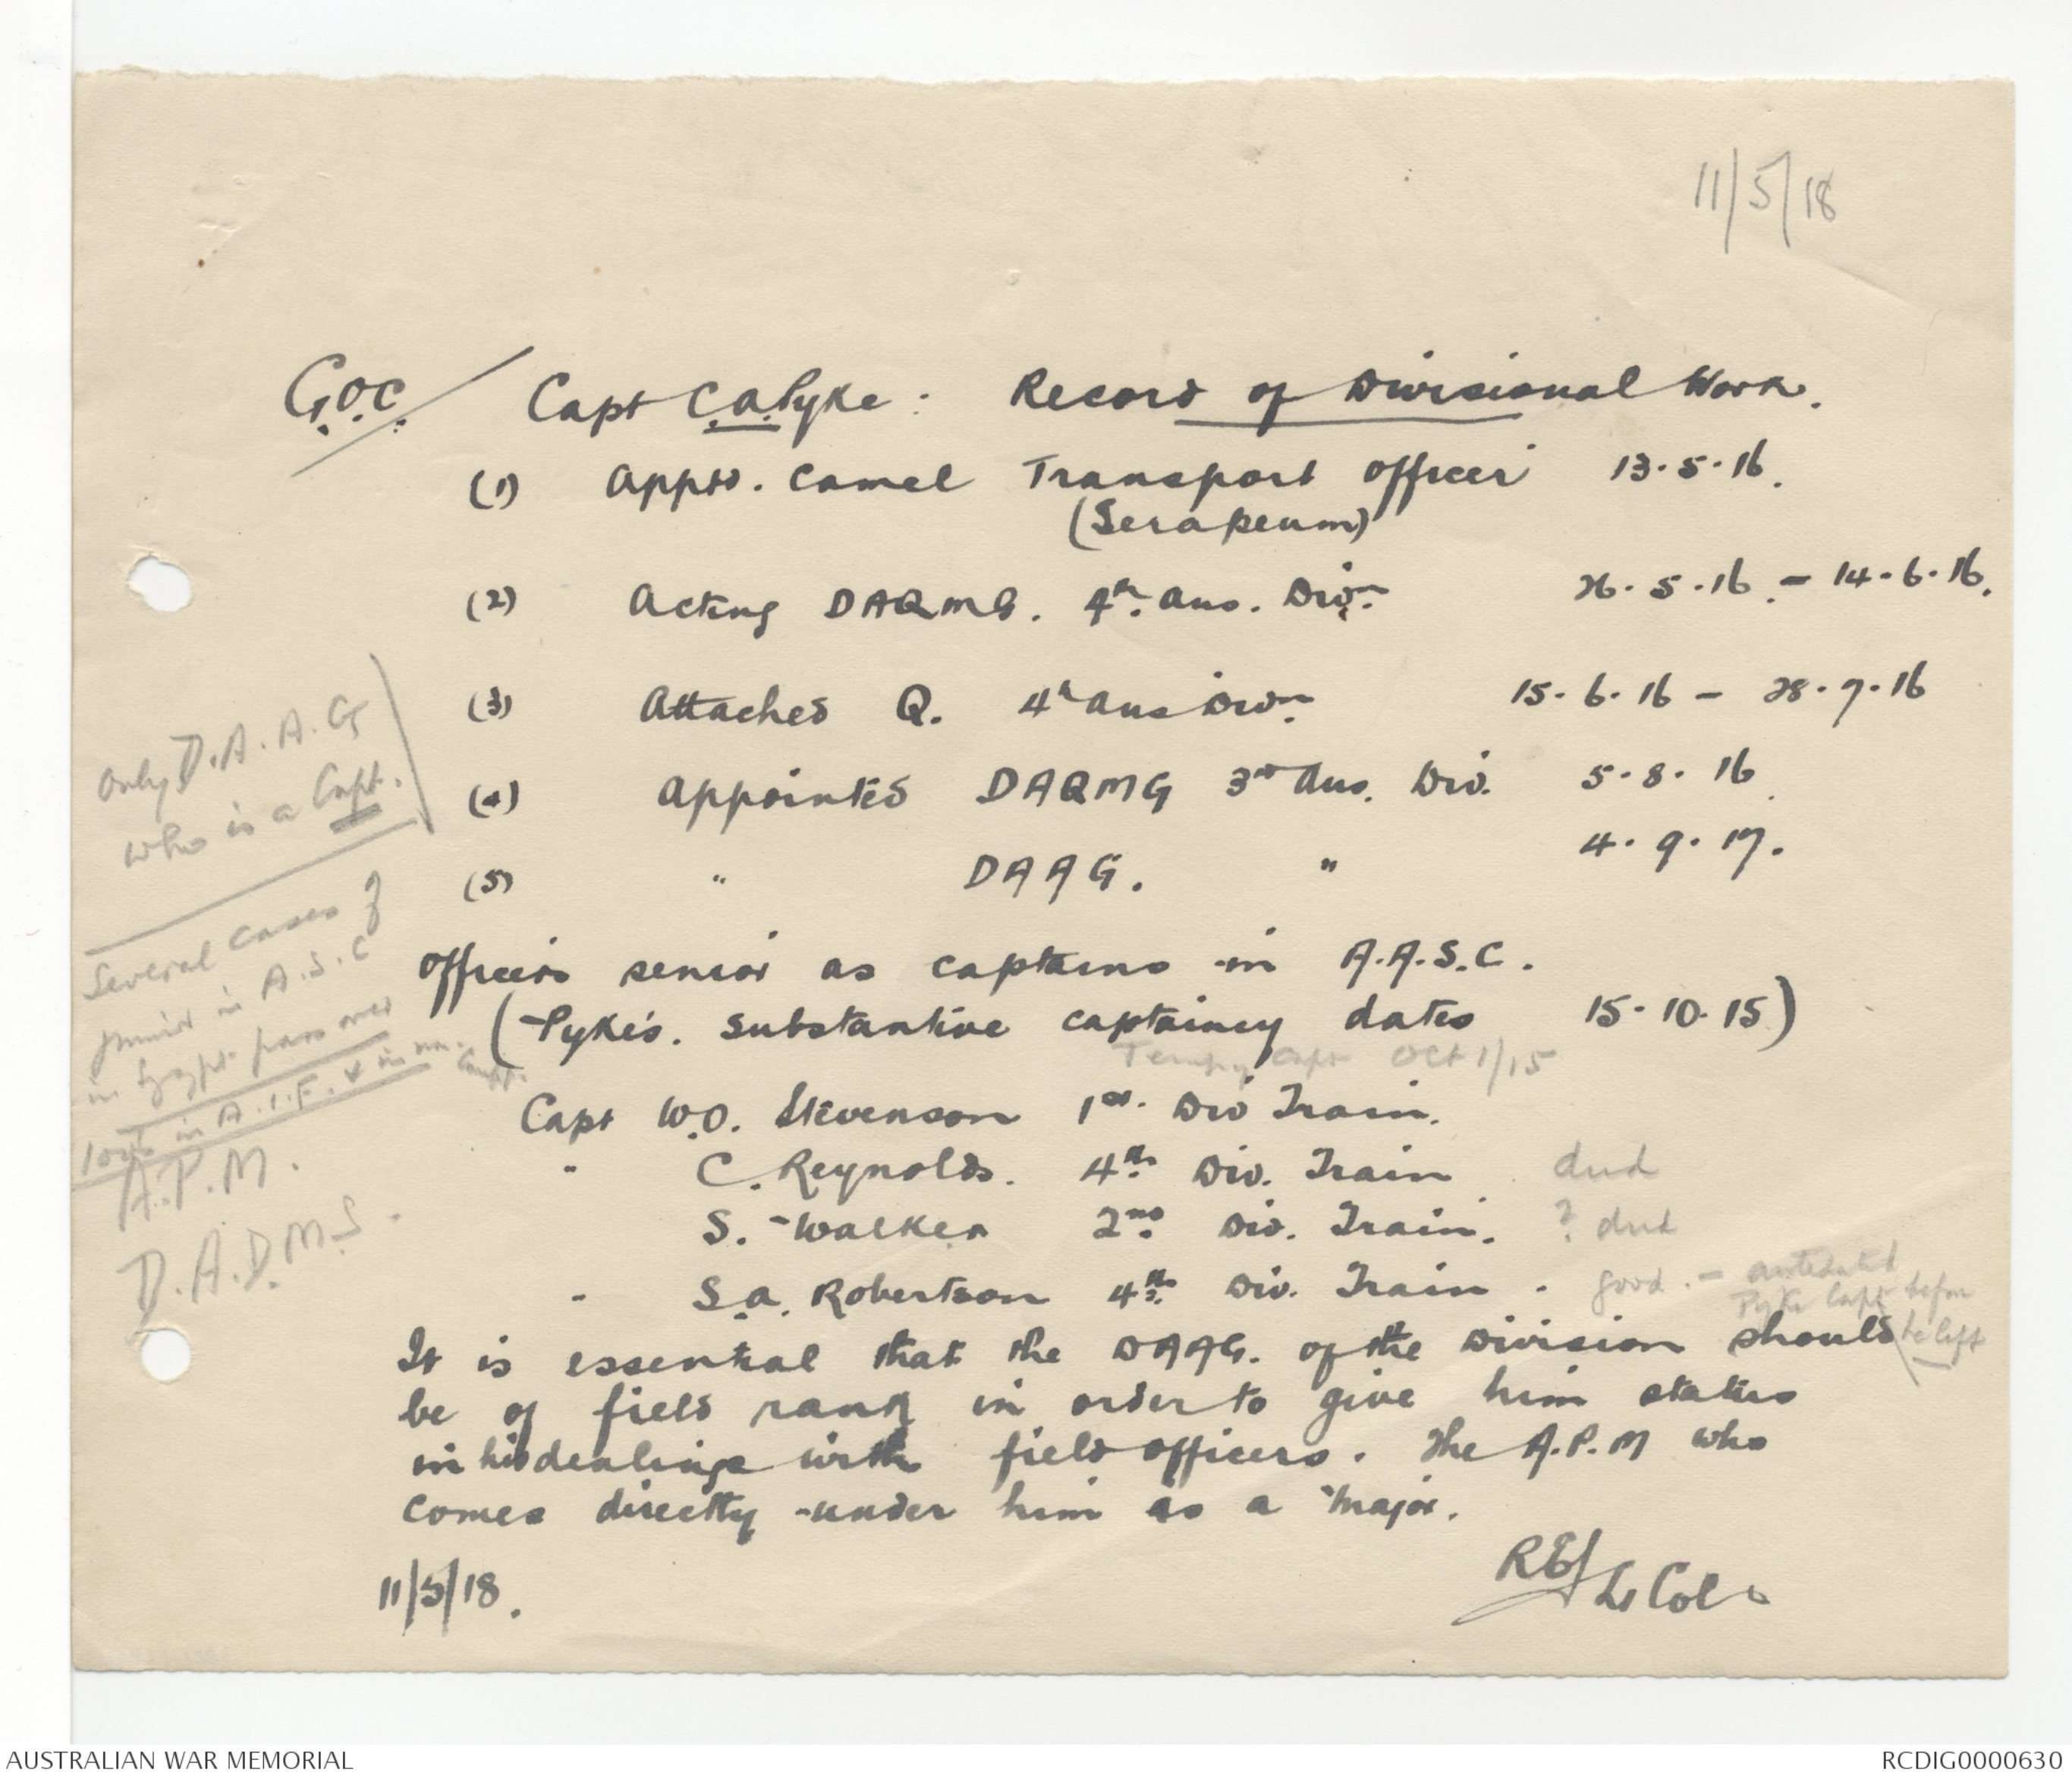 11/5/18
G.O.C. Capt C.A. Pyke : Record of Divisional Work.
(1) Apptd. Camel Transport Officer 13.5.16.
(Serapeum)
(2) Acting DAQMG. 4th. Aus. Divn. 26.5.16. - 14.6.16.
(3) Attached Q. 4th Aus Divn. 15.6.16 - 28.7.16
(4) Appointed DAQMG 3rd Aus. Div. 5.8.16.
(5) " DAAG. " 4.9.17.
Officers senior as captains in A.A.S.C.
(Pyke's. substantive captaincy dates 15.10.15)
Tempy Capt Oct 1/15
Capt W.O. Stevenson 1st. Div Train.
" C. Reynolds. 4th. Div. Train. dud
S. Walker 2nd. Div. Train. ? dud
" S.A. Robertson 4th. Div. Train. good. - antedated
Pyke Capt before
he left
It is essential that the DAAG. of the Division should
be of field rank in order to give him status
in his dealings with field officers. The A.P.M who
comes directly under him is a Major.
11/5/18. REJ Lt Col
Only D.A.A.G
who is a Capt.
Several cases of
junior in A.S.C
in Egypt pass over
in A.I.F. & in
A.P.M.
D.A.D.M.S.
AUSTRALIAN WAR MEMORIAL
RCDIG0000630